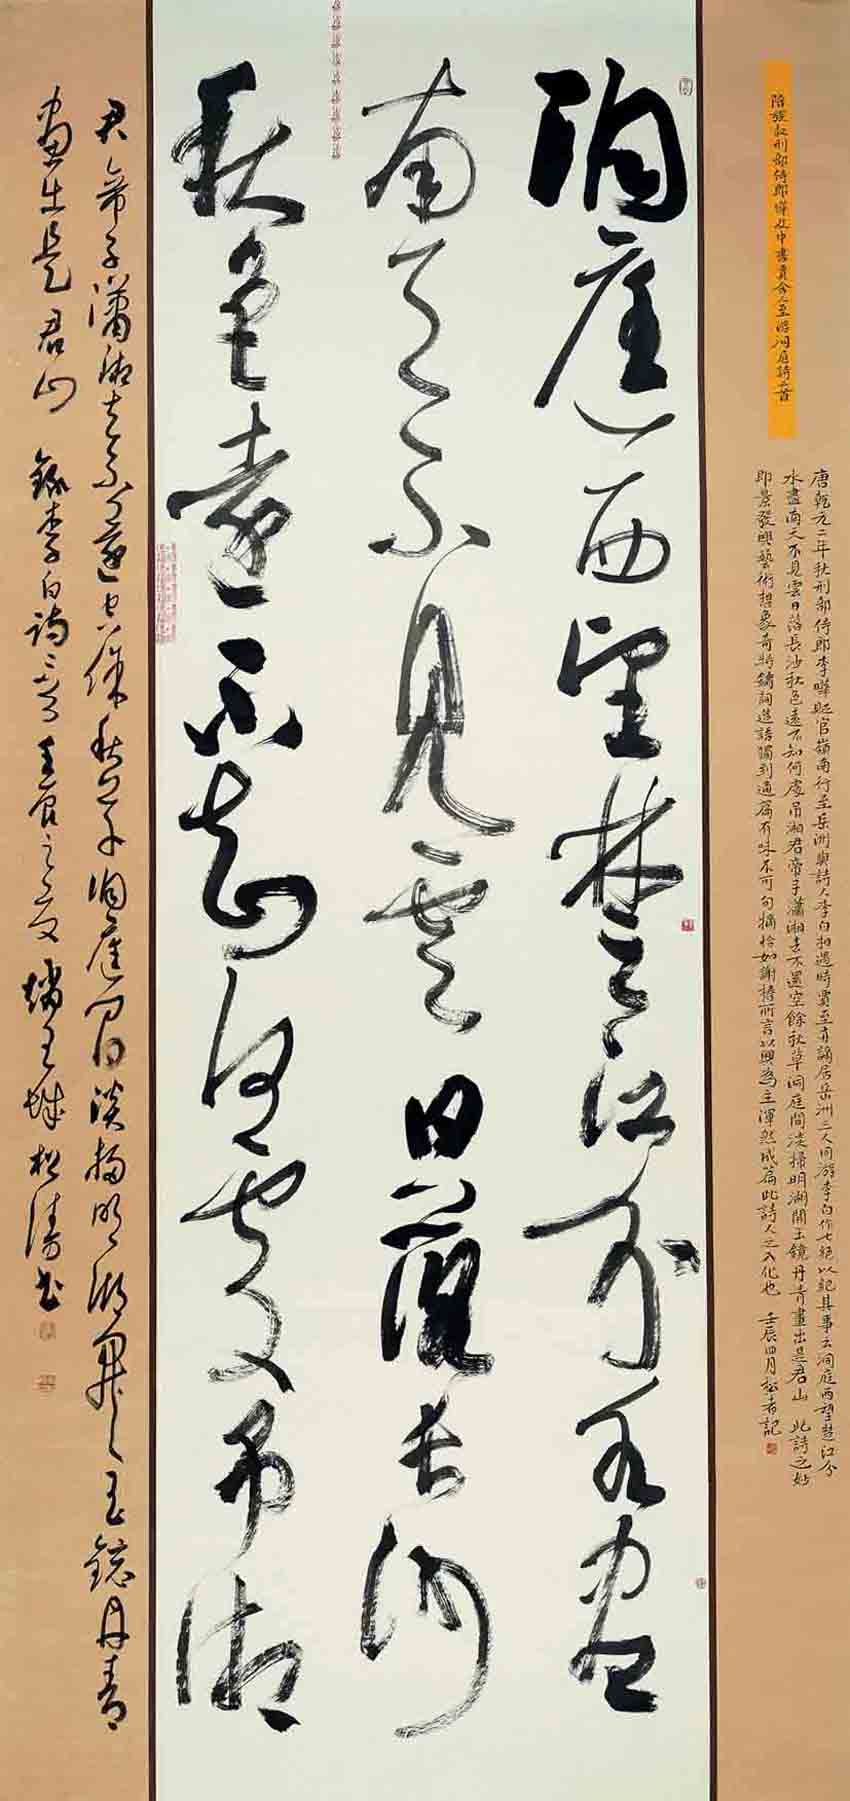 陪族叔刑部侍郎曄及中書賈舍人至游洞庭詩二首
唐乾元二年秋刑部侍郎李曄貶官嶺南行至岳洲與詩人李白相遇時賈至亦謫居岳洲三人同游李白作七絕以紀其事云洞庭西望楚江分
水盡南天不見雲日落長沙秋色遠不知何處吊湘君帝子瀟湘去不還空餘秋草洞庭間淡掃明湖開玉鏡丹青畫出是君山 此詩之妙
即景發興藝術想象奇特鑄詞造語獨到通篇有味不可句摘恰如謝榛所言以興為主渾然成篇此詩人之入化也 壬辰四月松者記
洞庭西望楚江分水盡
南天不見雲日落長沙
秋色遠不知何處吊湘
君帝子瀟湘去不還空餘秋草洞庭間淡掃明湖開玉鏡丹青
畫出是君山 錄李白詩二首 壬辰之夏 王城松濤書